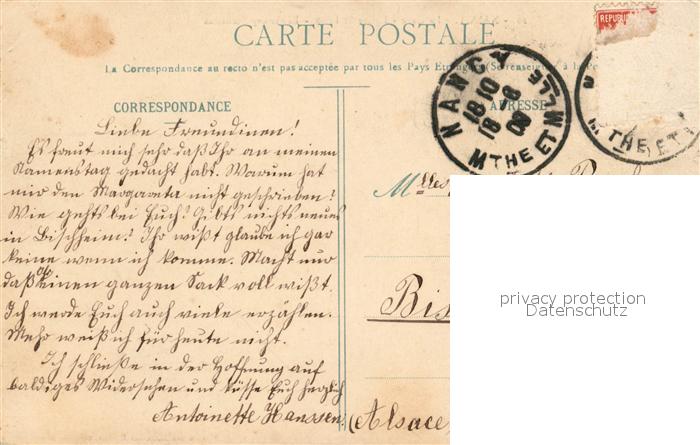 CARTE POSTALE
La Correspondance au recto n'est pas acceptée par tous les Pays Etrangers (Se renseigner à la
CORRESPONDANCE
ADRESSE
NANCY
18 10
8 - 8
09
MTHE ET MLLE
REPUBL
MTHE ET M
Liebe Freundinen!
Es freut mich sehr daß Ihr an meinen
Namenstag gedacht habt. Warum hat
mir den Margareta nicht geschrieben?
Wie gehts bei Euch? Gibts nichts neues
in Bischheim? Ihr wißt glaube ich gar
keine wenn ich komme. Macht nur
daß einen ganzen Sack voll wißt.
Ich werde Euch auch viele erzählen.
Mehr weiß ich für heute nicht.
Ich schließe in der Hoffnung auf
baldiges Widersehen und küsse Euch herzlich
Antoinette Hanssen.
Mlles
Bis
(Alsace
privacy protection
Datenschutz